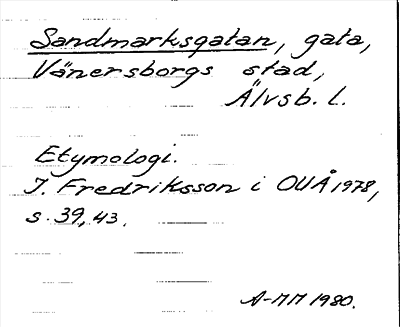 Sandmarksgatan, gata,
Vänersborgs stad,
Älvsb. l.
Etymologi.
I. Fredriksson i OUÅ 1978,
s. 39, 43.
A-MM 1980.